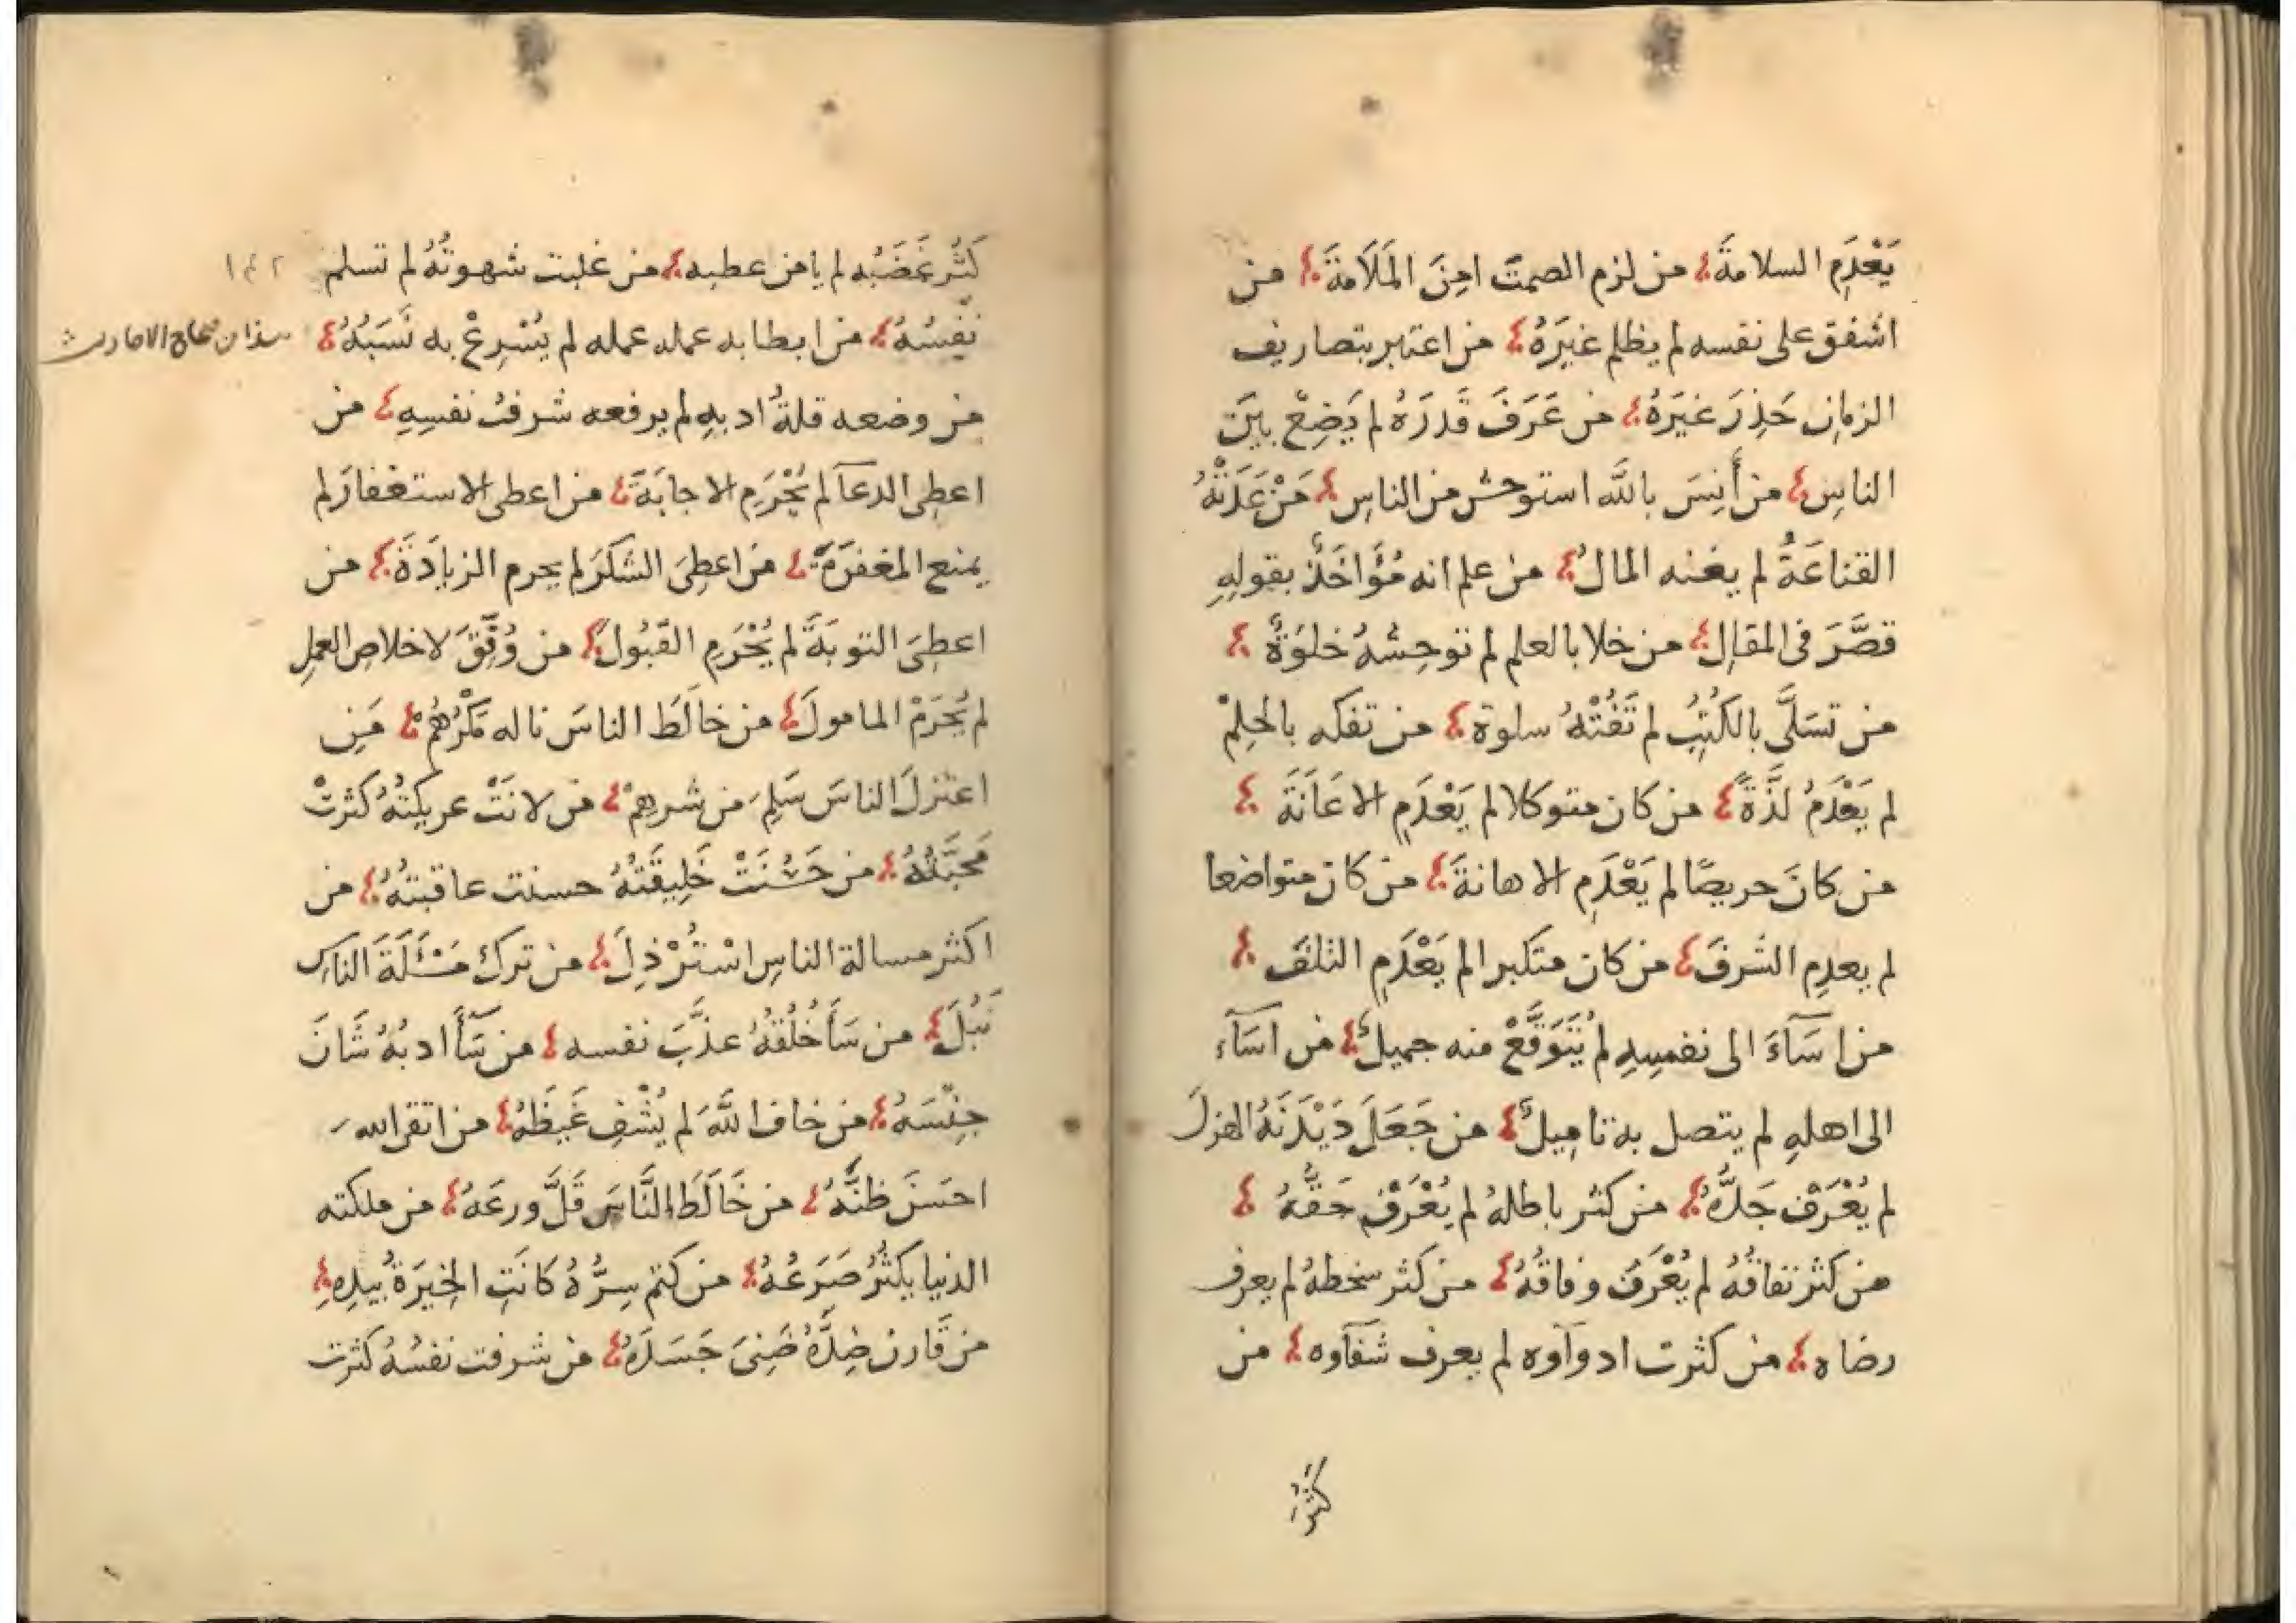 يَعْدَمِ السلامةَ من لزم الصمتَ امِنَ المَلَامَةَ من
اشفق على نفسه لم يظلم غيَرَهُ من اعتبر بتصاريف
الزمانِ حَذِرَ غيَرَهُ من عَرَفَ قَدرَهُ لم يَضِعْ بينَ
الناسِ من أَنِسَ بالله استوحش من الناسِ مَنْ عَدَتْهُ
القناعَةُ لم يغنه المالُ من علم انه مُؤَاخَذٌ بقولِهِ
قصَّرَ فى المقالِ من خلا بالعلم لم توحِشهُ خلوَةٌ
من تسَلَّى بالكُتِبُ لم تَفُتْهُ سلوة من تفكه بالحِلِمْ
لم يَعْدَمُ لذَّةً من كان متوكلا لم يَعْدَمِ الاعَانَةَ
من كانَ حريصًا لم يَعْدَمِ الاهانةَ من كان متواضعا
لم يعدِم الشَرفَ من كان متكبرا لم يَعْدَمِ التلفَ
من اسَآءَ الى نفسِهِ لم يُتَوَقَّعْ منه جميلٌ من اسَآء
الى اهلهِ لم يتصل به تامِيلٌ من جَعَلَ دَيْدَنَهُ الهزلَ
لم يُعْرَفْ جَدُّهُ من كثر باطلهُ لم يُعْرَفْ حَقُّهُ
من كثر نفاقُهُ لم يُعْرَفْ وفاقُهُ من كثر سخطهُ لم يعرف
رضاه من كثرت ادوآوه لم يعرف شفآوه من
كثُرَ
كَثُر غَضَبُه لم يامن عطبه من غلبت شهوتُهُ لم تسلم
نفِسُهُ من ابطا به عمله عمله لم يُسْرِعْ به نَسَبُهُ
من وضعه قلةُ ادبهِ لم يرفعه شرفُ نفسِهِ من
اعطِى الدعآ لم يُحْرَمِ الاجابَةَ من اعطى الاستغفارَ لم
يمنع المغفرَةَ من اعطِىَ الشكرَ لم يحرم الزيادَةَ من
اعطِىَ التوبَةَ لم يُحْرَمِ القَبُولَ من وُفِّقَ لاخلاصِ العملِ
لم يُحرَمْ المامولَ من خالَطَ الناسَ ناله مَكْرُهُمْ مَنِ
اعتزلَ الناسَ سَلِمَ من شرهِمْ من لانَتْ عريكتُهُ كثرتْ
مَحبَّتُهُ من حَسُنَتْ خَلِيقَتُهُ حسنت عاقبتُهُ من
اكثر مسالة الناسِ اسْتُرْذِلَ من ترك مَسْئَلَةَ الناس
نَبُلَ من سَأَخُلُقُهُ عذَّبَ نفسه من سَآأدبُهُ شَانَ
جِنْسَهُ من خاف اللَّهَ لم يُشْفِ غَيظَهُ من اتقى الله
احسَنَ ظنَّهُ من خَالَطَ النَّاسَ قَلَّ ورعَهُ من ملكته
الدنيا يكثُرُ صَرَعُهُ من كتم سِرَّهُ كانَتِ الخِيرَةُ بيدِهِ
من قَارن ضِدَّهُ ضَنِىَ جَسَدَهُ من شرفت نفسُهُ كثرت
١٤٢
هذا من صحاح الاحاديث